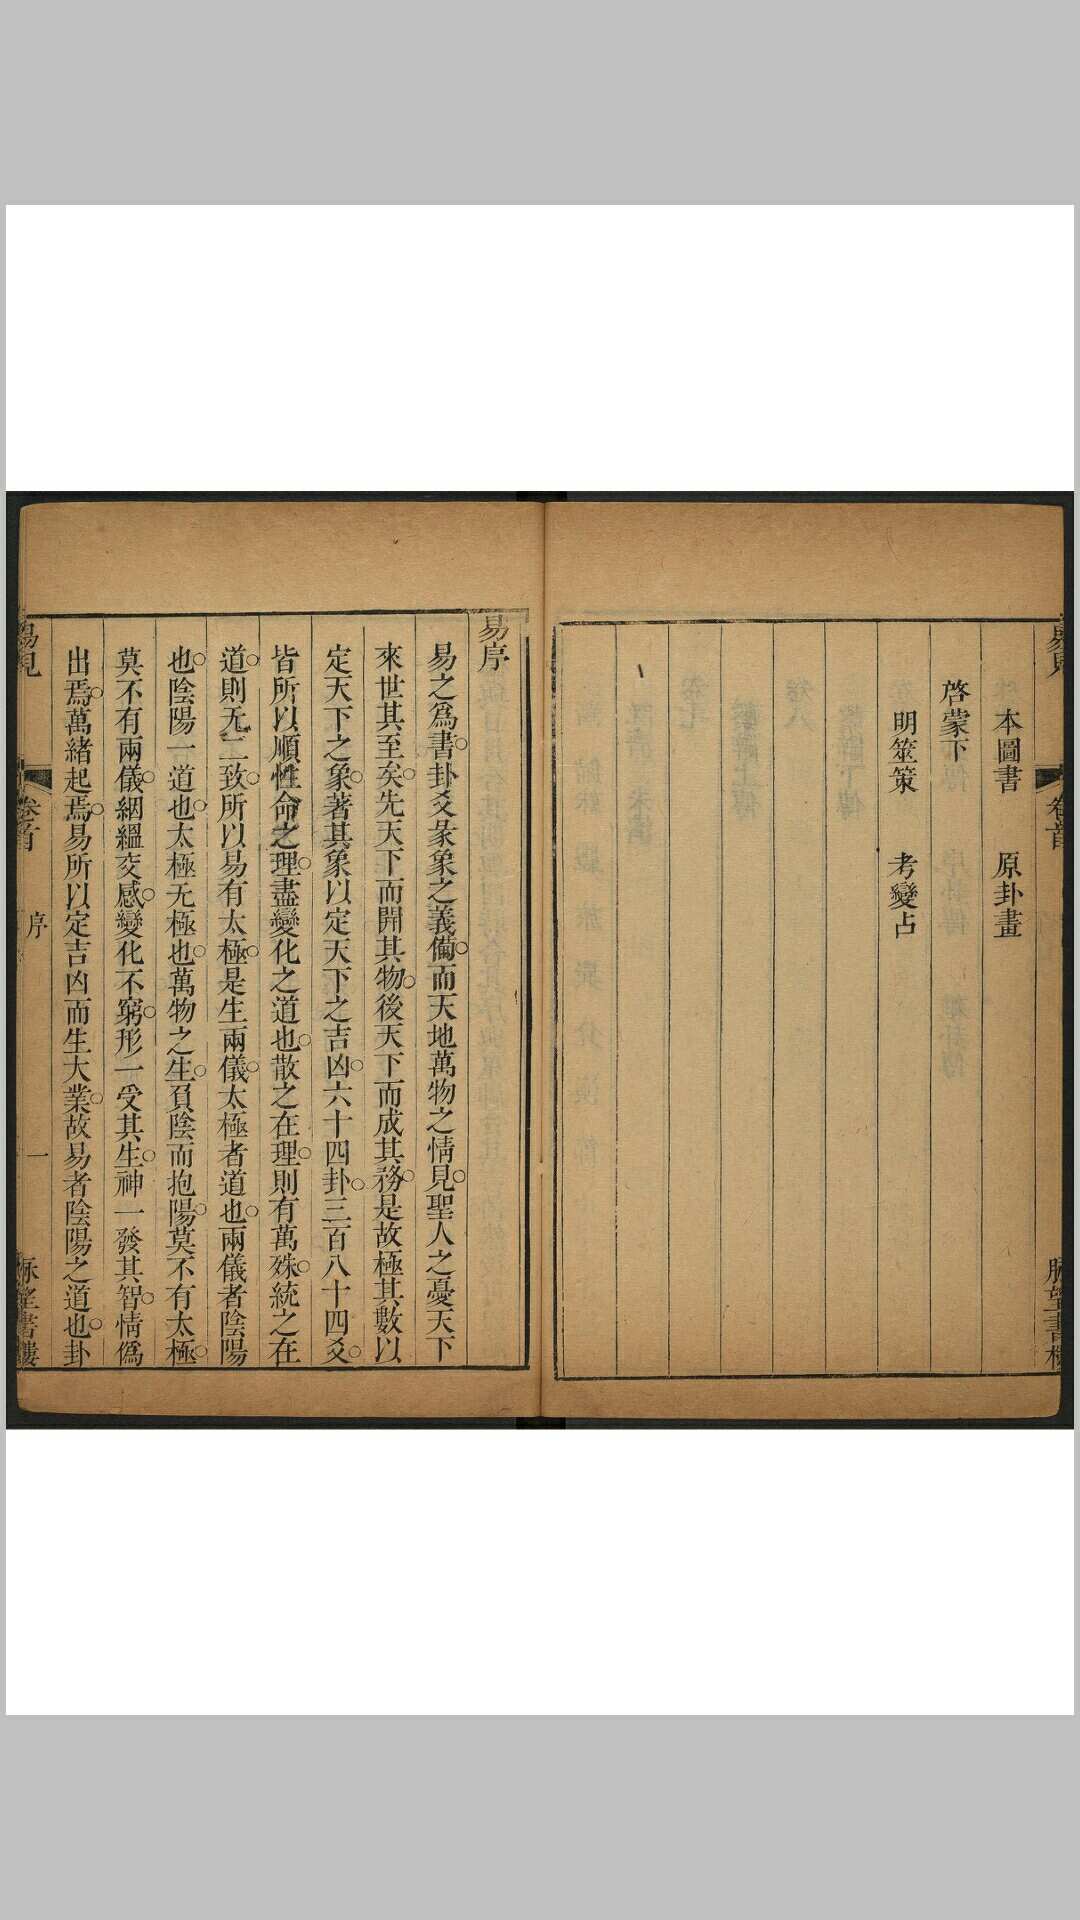 本圖書 原卦畫
啓蒙下
明筮策 考變占
易序
易之為書卦爻彖象之義備而天地萬物之情見聖人之憂天下
來世其至矣先天下而開其物後天下而成其務是故極其數以
定天下之象著其象以定天下之吉凶六十四卦三百八十四爻
皆所以順性命之理盡變化之道也散之在理則有萬殊統之在
道則无二致所以易有太極是生兩儀太極者道也兩儀者陰陽
也陰陽一道也太極无極也萬物之生負陰而抱陽莫不有太極
莫不有兩儀絪縕交感變化不窮形一受其生神一發其智情僞
出焉萬緒起焉易所以定吉凶而生大業故易者陰陽之道也卦
易見 卷首 序 一 脉望書樓